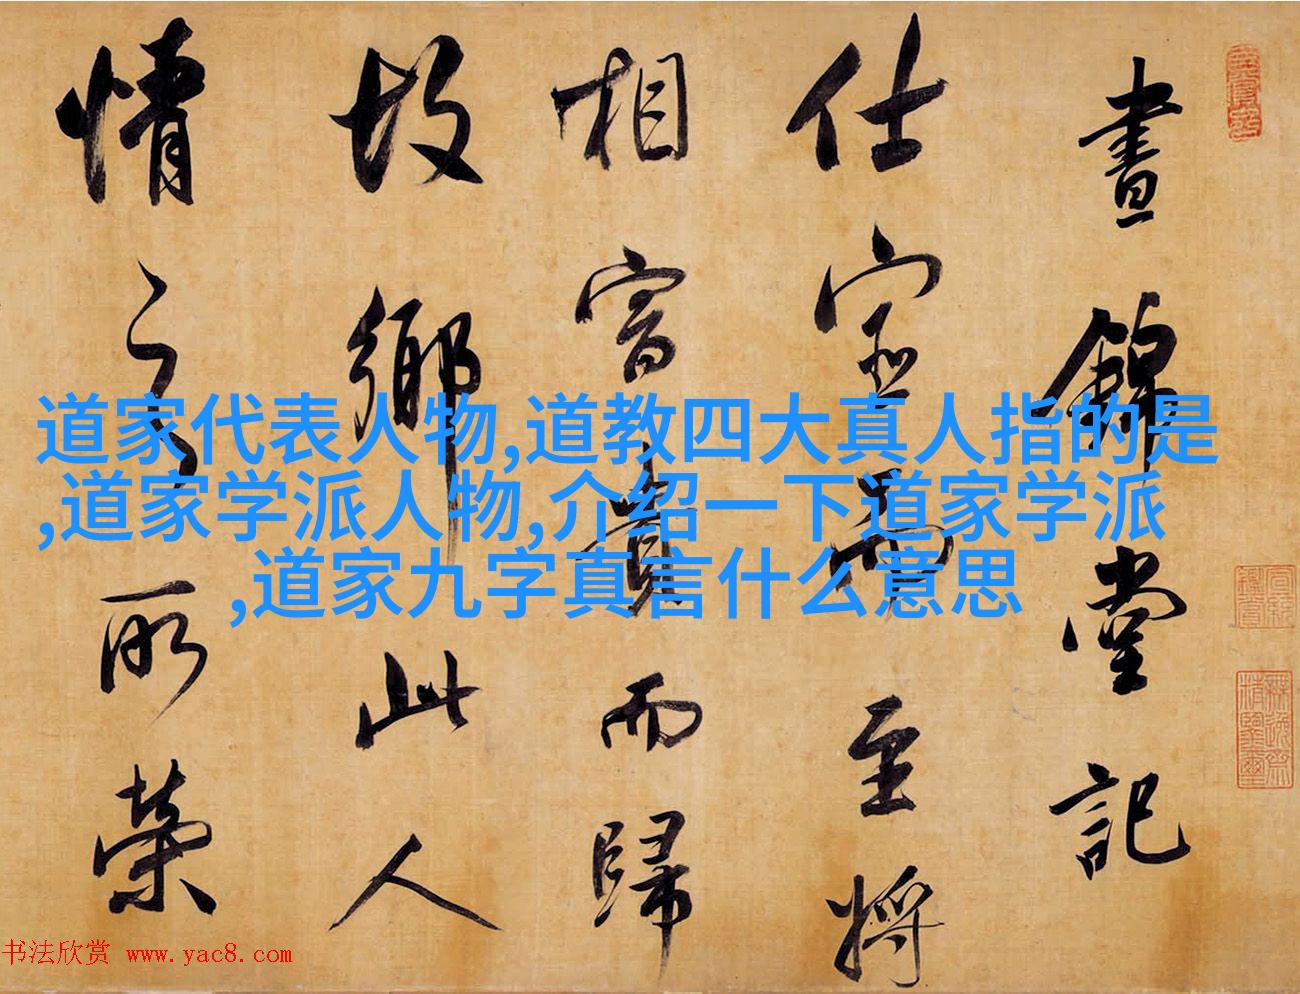 晝錦堂記
仕宦而至將
相富貴而歸
故鄉此人
情之所榮
道家代表人物,道教四大真人指的是
,道家学派人物,介绍一下道家学派
,道家九字真言什么意思
书法欣赏 www.yac8.com